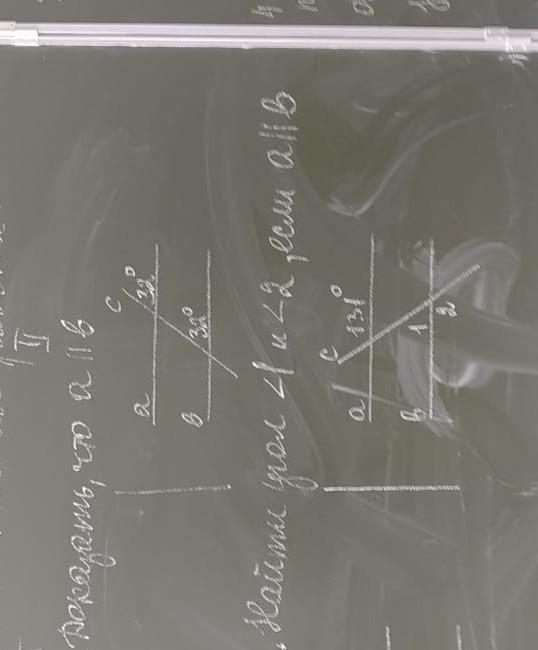 II
Доказать, что a || в
c
a 32°
в 32°
Найти угол <1 и <2, если a || в
c
a 131°
в 1
2